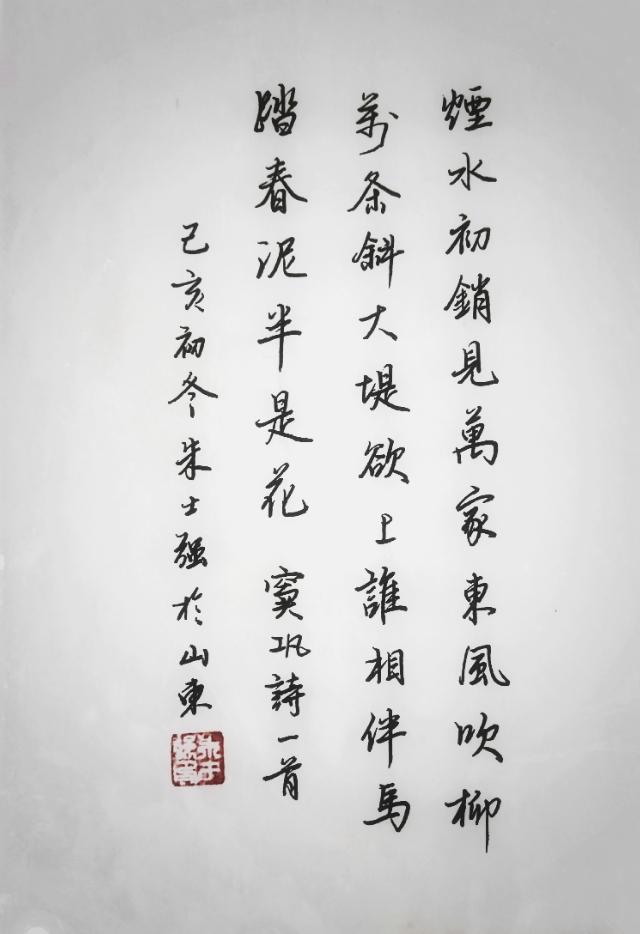 煙水初銷見萬家東風吹柳
万条斜大堤欲上誰相伴馬
踏春泥半是花 窦巩詩一首
己亥初冬朱士强於山東